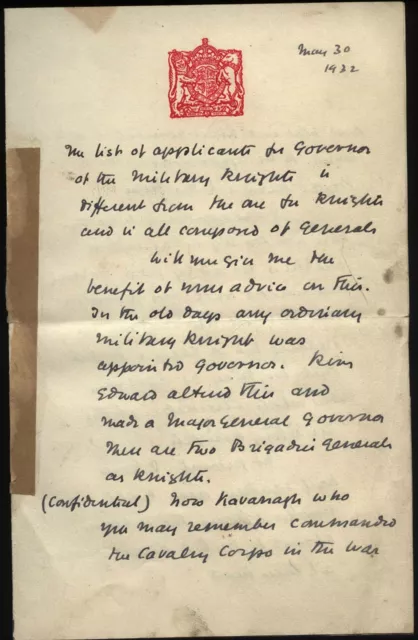 May 30
1932
The list of applicants for Governor
of the Military Knights is
different from the one for Knights
and is all composed of Generals
Will you give me the
benefit of your advice on this.
In the old days any ordinary
Military Knight was
appointed Governor. King
Edward altered this and
made a Major General Governor
There are two Brigadier Generals
as Knights.
(Confidential) Now Kavanagh who
you may remember commanded
the Cavalry Corps in the War